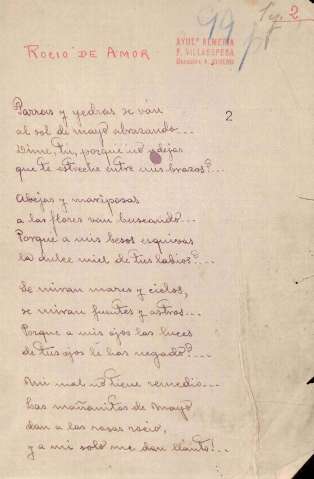 99 pt
2
ROCIO DE AMOR
AYUNT ALMERIA
F. VILLAESPESA
2
Parras y yedras se ván
al sol de mayo abrazando...
Dime, tú, porqué no dejas
que te estreche entre mis brazos?...
Abejas y mariposas
a las flores van buscando...
Porque a mis besos esquivas
la dulce miel de tus labios?...
Se miran mares y cielos,
se miran fuentes y astros...
Porque a mis ojos las luces
de tus ojos le has negado?...
Mi mal no tiene remedio...
Las mañanitas de Mayo
dan a las rosas rocio,
y a mi solo me dan llanto!..